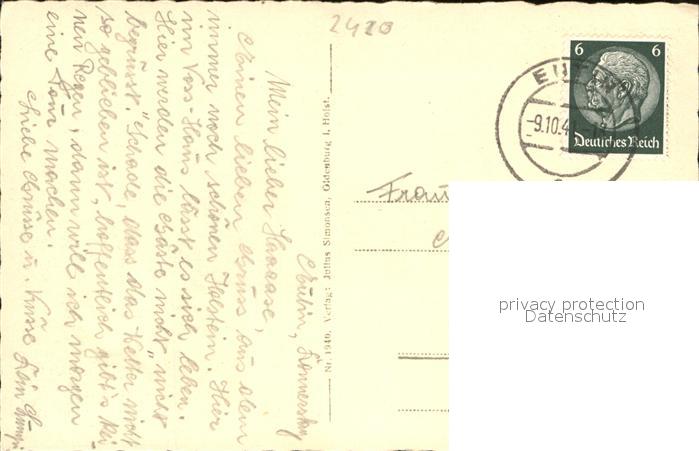 2420
Eutin, Donnerstag
Mein lieber Haaase,
Einen lieben Gruss aus dem
immer noch schönen Holstein. Hier
im Voss-Haus lässt es sich leben.
Hier werden die Gäste nicht "nicht
begrüsst". Schade, dass das Wetter nicht
so geblieben ist, hoffentlich gibt's kei-
nen Regen, dann will ich morgen
eine Tour machen.
Liebe Grüsse u. Küsse Dein
Nr. 1940, Verlag: Julius Simonsen, Oldenburg i. Holst.
6 6
Deutsches Reich
EUTIN
-9.10.4
Frau
privacy protection
Datenschutz